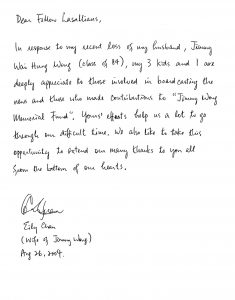 Dear Fellow Lasallians,
In response to my recent loss of my husband, Jimmy
Wai Hung Wong (class of 84), my 3 kids and I are
deeply appreciate to those involved in boardcasting the
news and those who made contributions to "Jimmy Wong
Memorial Fund". Yours' efforts help us a lot to go
through our difficult time. We also like to take this
opportunity to extend our many thanks to you all
from the bottom of our hearts.
Eily Chan
(Wife of Jimmy Wong)
Aug 26, 2004.